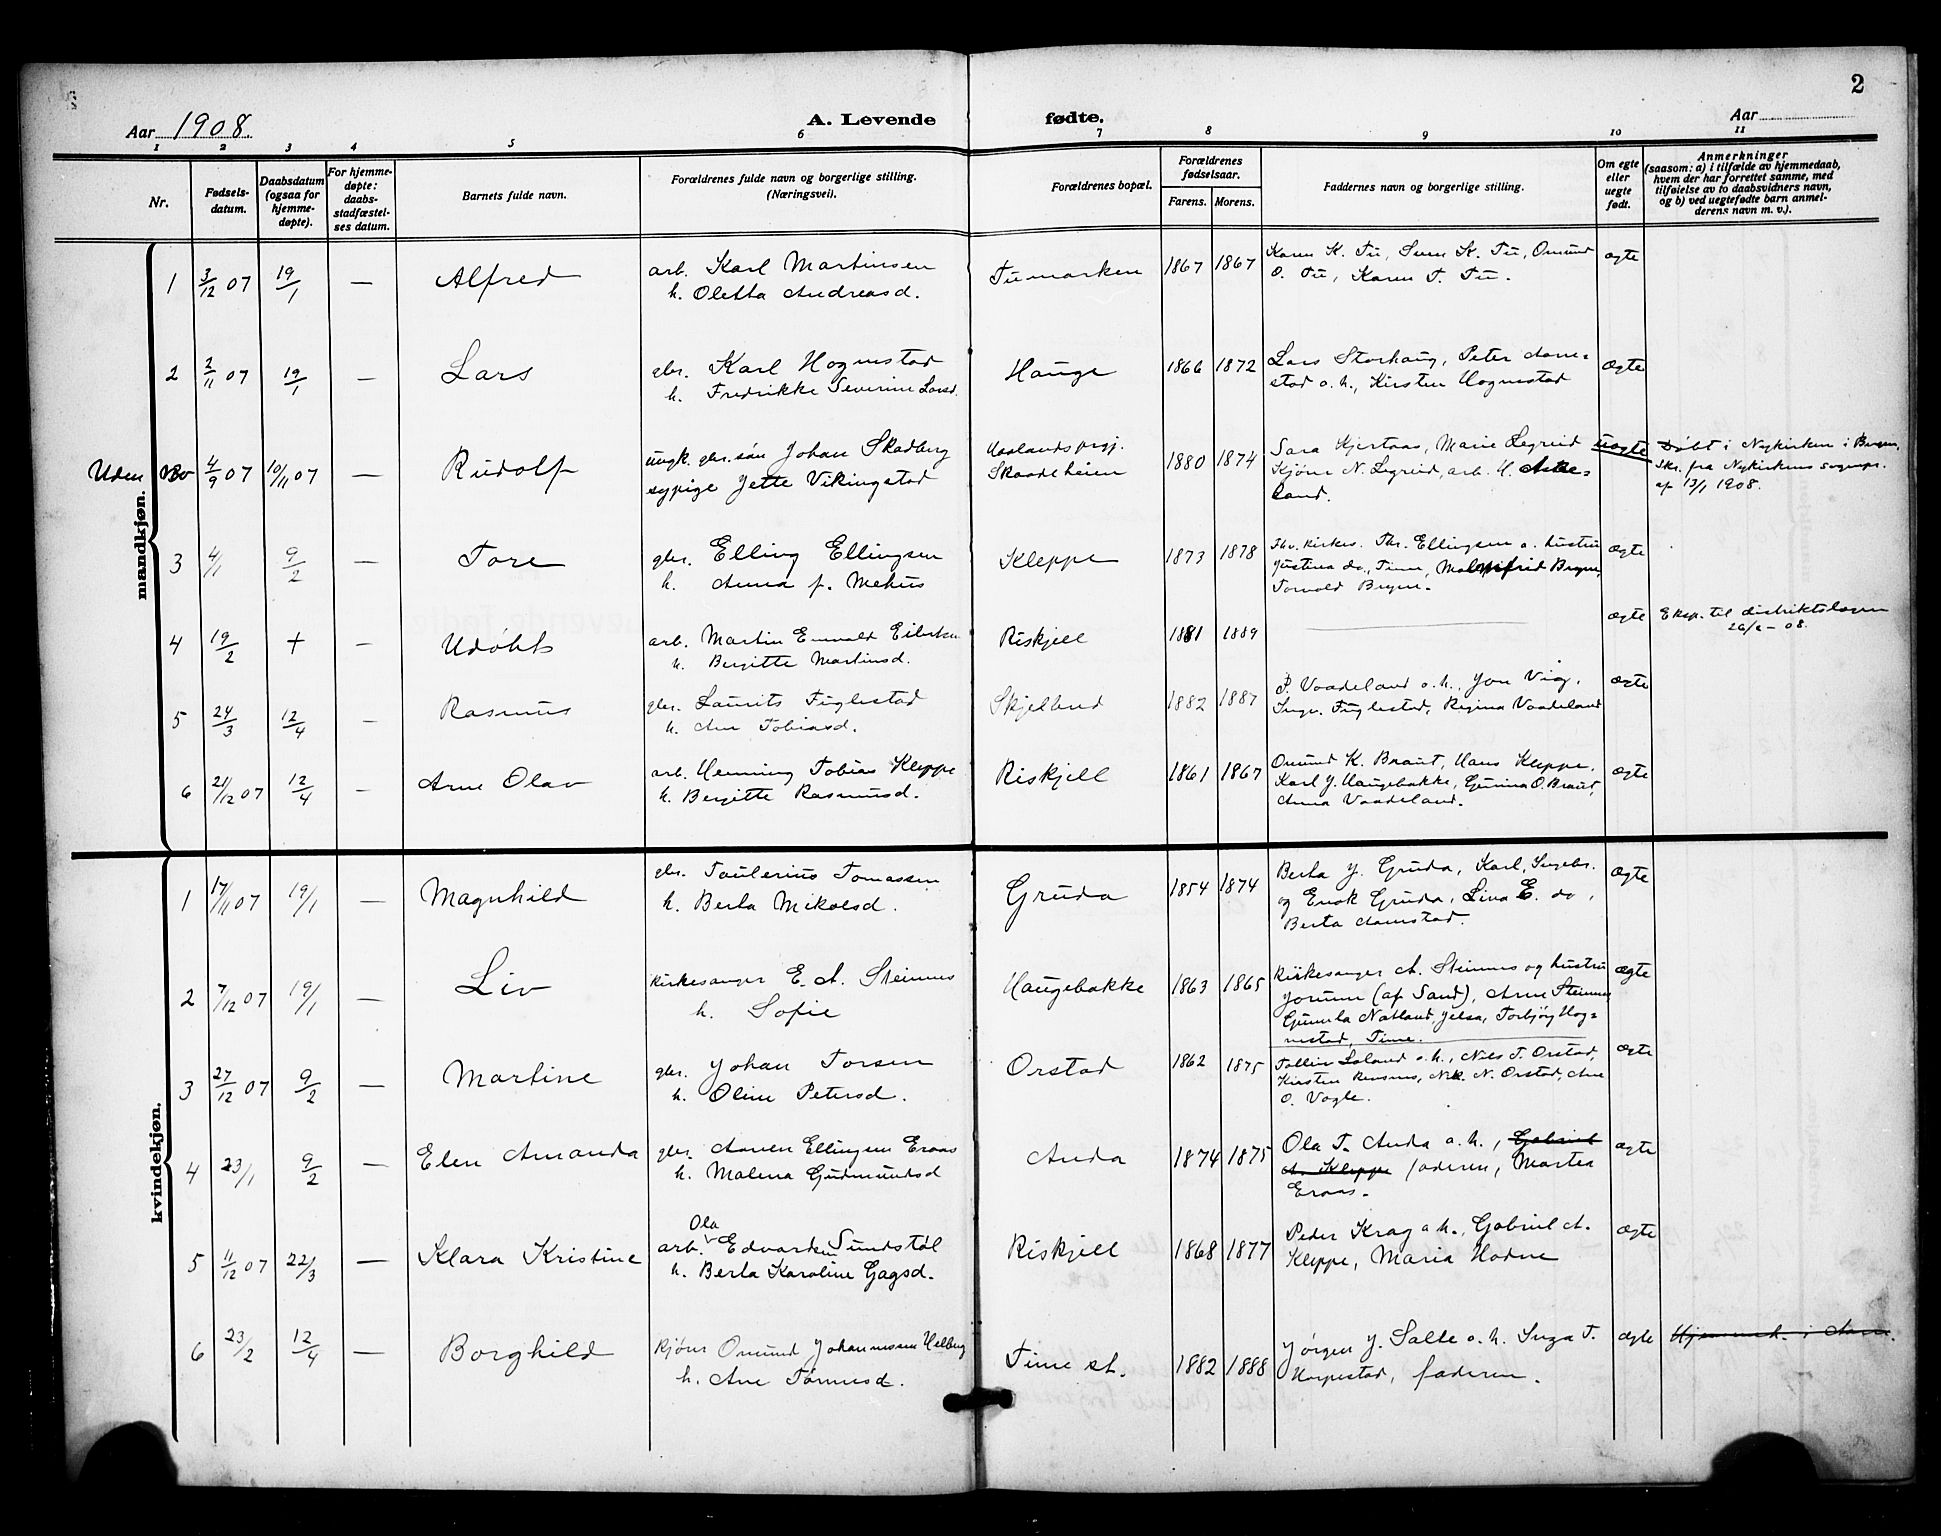 2
Aar 1908.
A. Levende fødte.
Aar
1 2 3 4 5 6 7 8 9 10 11
Nr.
Fødsels-
datum.
Daabsdatum
(ogsaa for
hjemme-
døpte).
For hjemme-
døpte:
daabs-
stadfæstel-
ses datum.
Barnets fulde navn.
Forældrenes fulde navn og borgerlige stilling.
(Næringsvei).
Forældrenes bopæl.
Forældrenes
fødselsaar.
Farens. Morens.
Faddernes navn og borgerlige stilling.
Om egte
eller
uegte
født.
Anmerkninger
(saasom: a) i tilfælde av hjemmedaab,
hvem der har forrettet samme, med
tilføielse av to daabsvidners navn,
og b) ved uegtefødte barn anmel-
derens navn m. v.).
mandkjøn.
1 3/12 07 19/1 — Alfred
arb. Karl Martinsen
h. Oletta Andreasd.
Tumarken 1867 1867
Karen K. Tu, Sven K. Tu, Omund
O. Tu, Karen T. Tu.
ægte
2 2/11 07 19/1 — Lars
gbr. Karl Hognestad
h. Fredrikke Severine Larsd.
Hauge 1866 1872
Lars Storhaug, Peter Aare=
stad o. h., Kirsten Hognestad
ægte
Uden No 4/9 07 10/11 07 — Rudolf
ungk. gbr. søn Johan Skadberg
sypige Jette Vikingstad
Haalands prgj.
Skaadeheien 1880 1874
Sara Kjertaas, Marie Legreid
Kjøm. N. Legreid, arb. H. Aske=
land.
uægte
Døbt i Nykirken i Bergen.
Skr. fra Nykirkens sognepr.
af 13/1 1908.
3 4/1 9/2 — Tore
gbr. Elling Ellingsen
h. Anna f. Mehus
Kleppe 1873 1878
Fhv. kirkes. Thr. Ellingsen o. hustru
Justina do., Time, Bryne,
Torvald Bryne.
ægte
4 19/2 + — Udøbt
arb. Martin Emvald Eilertsen
h. Bergitte Martinsd.
Riskjell 1881 1889
ægte
Eksp. til distriktslægen
26/2 - 08.
5 24/3 12/4 — Rasmus
gbr. Laurits Fuglestad
h. Ane Tobiasd.
Skjelbred 1882 1887
P. Vaadeland o. h., Jon Vig,
Inge. Fuglestad, Regina Vaadeland
ægte
6 21/12 07 12/4 — Arne Olav
arb. Henning Tobias Kleppe
h. Bergitte Rasmusd.
Riskjell 1861 1867
Omund K. Braut, Hans Kleppe,
Karl J. Haugebakke, Gunina O. Braut,
Anna Vaadeland.
ægte
kvindekjøn.
1 17/11 07 19/1 — Magnhild
gbr. Taulerius Tomassen
h. Berta Mikalsd.
Gruda 1854 1874
Berta J. Gruda, Karl, Ingebr.
og Enok Gruda, Lina E. do,
Berta Aarestad.
ægte
2 7/12 07 19/1 — Liv
Kirkesanger E. A. Steinnes
h. Sofie
Haugebakke 1863 1865
Kirkesanger A. Steinnes og hustru
Jorunn (af Sand), Arne Steinnes
Gunnla Natland, Jelsa, Torbjørg Hog=
nestad, Time.
ægte
3 27/12 07 9/2 — Martine
gbr. Johan Torsen
h. Oline Petersd.
Orstad 1862 1875
Tollin Loland o. h., Nils T. Orstad,
Kirsten Reusnes, Nik. N. Orstad, Ane
O. Vagle.
ægte
4 23/1 9/2 — Elen Amanda
gbr. Aanen Ellingsen Eraas
h. Malena Gudmundsd
Anda 1874 1875
Ola T. Anda o. h., Gabriel
A. Kleppe faderen, Martea
Eraas.
ægte
5 11/12 07 22/3 — Klara Kristine
Ola
arb. Edvardsen Sundstøl
h. Berta Karoline Gagsd.
Riskjell 1868 1877
Peder Krag o. h., Gabriel A.
Kleppe, Maria Hodne
ægte
6 23/2 12/4 — Borghild
Kjøm Omund Johannessen Helberg
h. Ane Tønnesd.
Time st. 1882 1888
Jørgen J. Salte o. h. Inga T.
Horpestad, faderen.
ægte